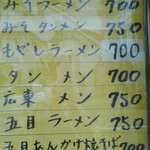 みそラーメン 700
みそタンメン 750
もやしラーメン 700
タンメン 700
広東メン 750
五目ラーメン 750
五目あんかけ焼そば 700